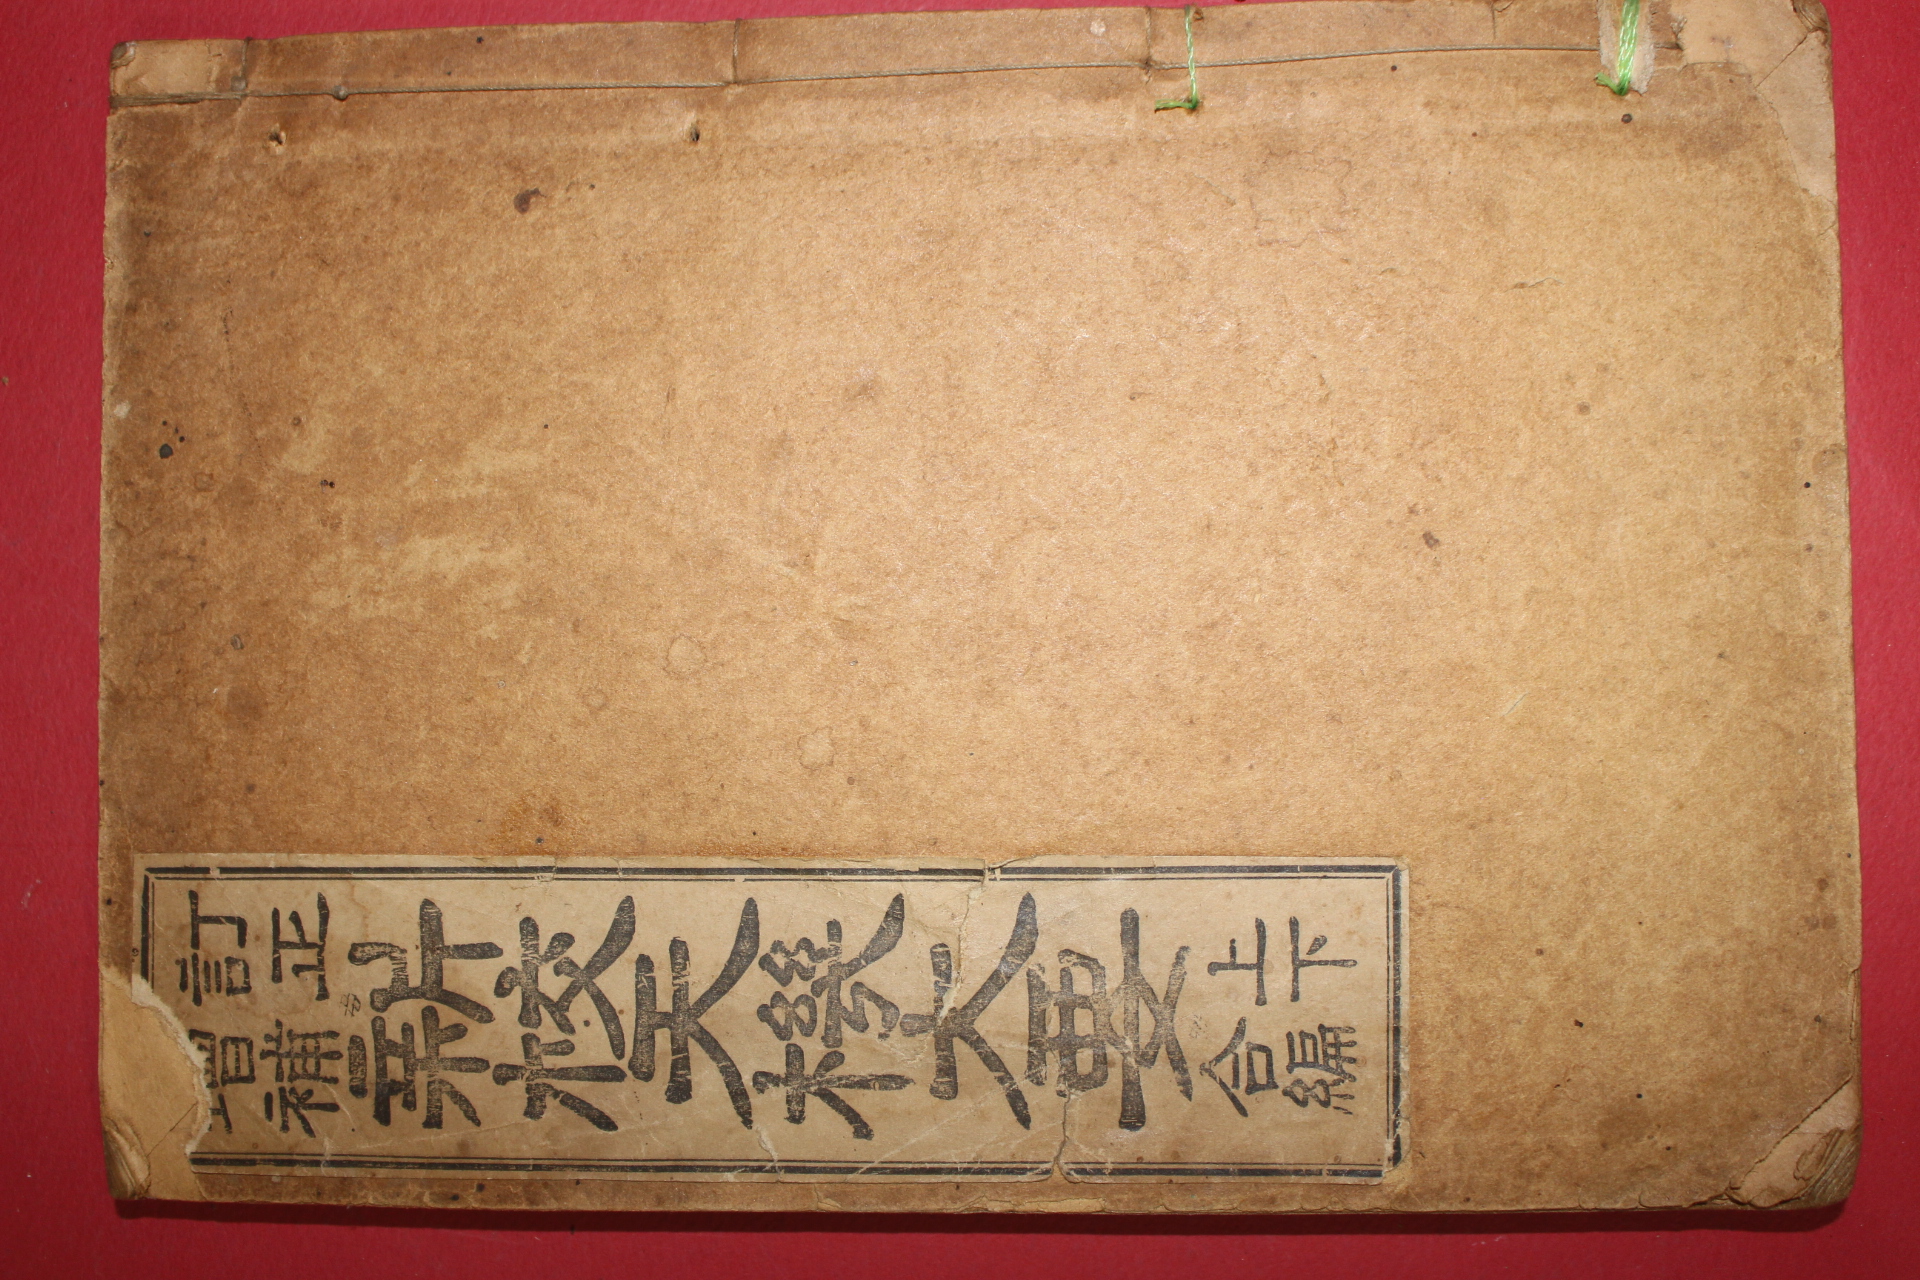 訂正
增補
新校天機大要
上下
合編